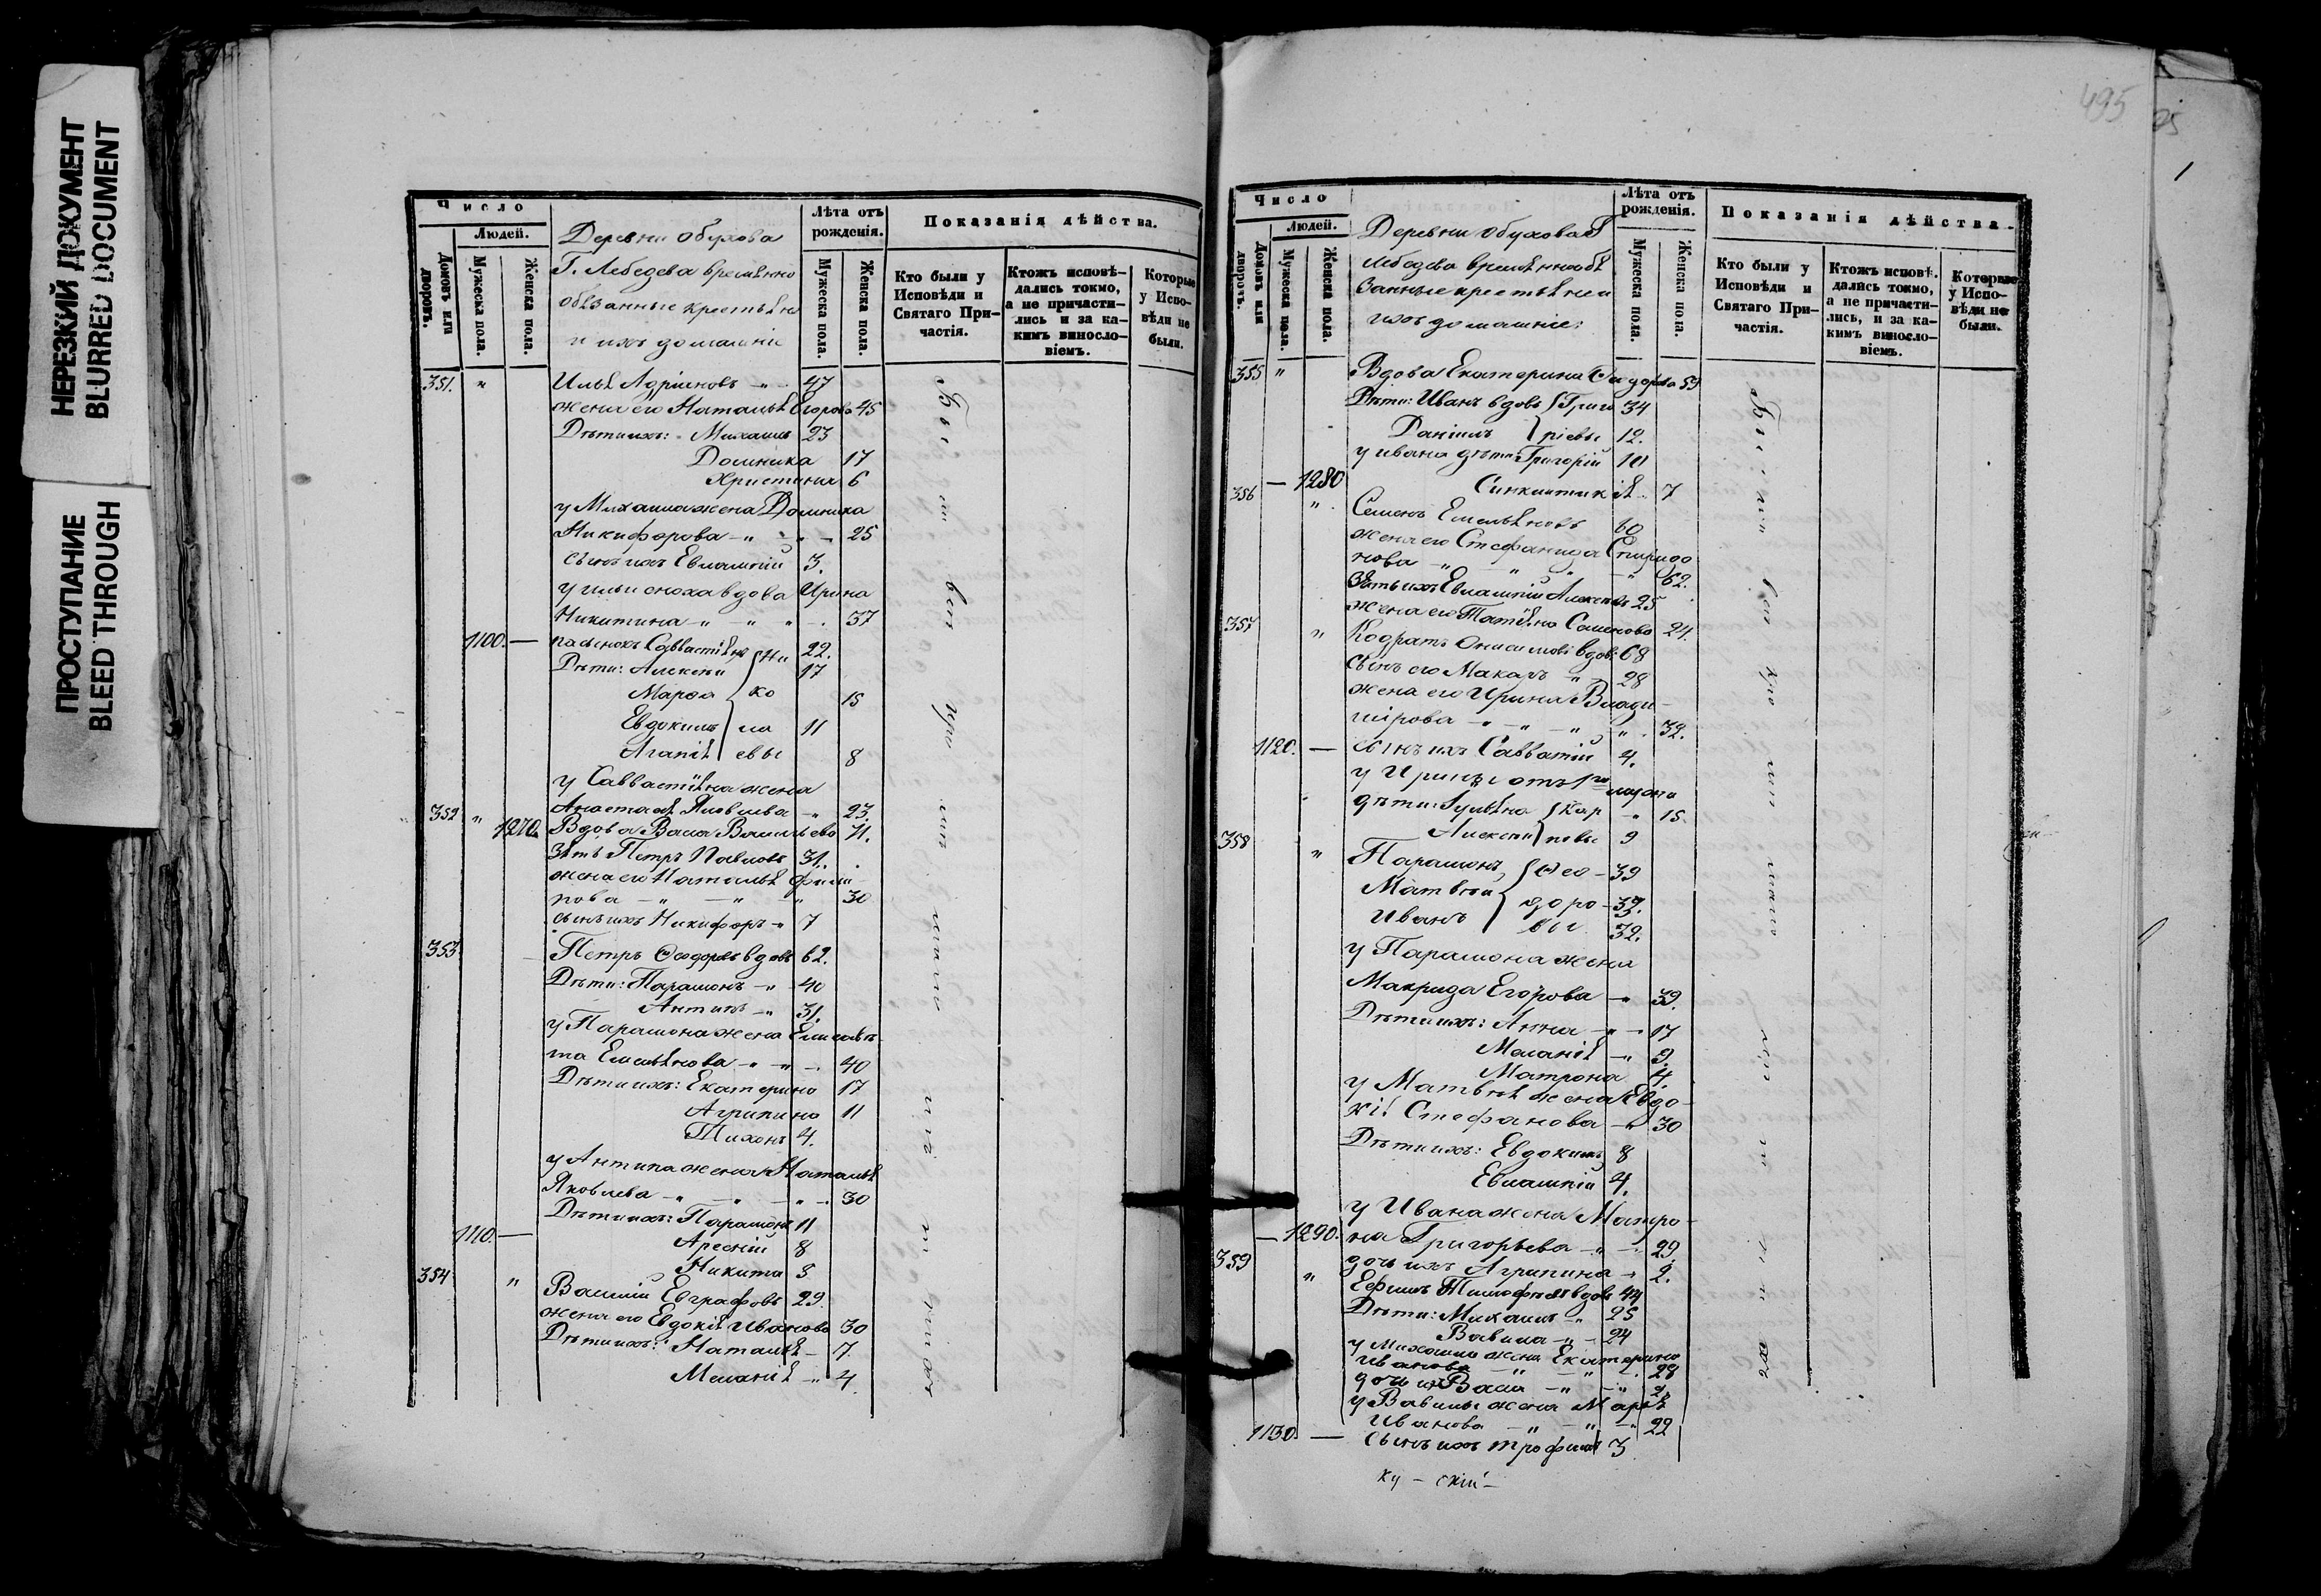 НЕРЕЗКИЙ ДОКУМЕНТ
BLURRED DOCUMENT
ПРОСТУПАНИЕ
BLEED THROUGH
Число
Людей.
Домовъ или дворовъ.
Мужеска пола.
Женска пола.
Деревни Обухова
Г. Лебедева временно
обязанные крестьяне
и ихъ домашніе
Лѣта отъ рожденія.
Мужеска пола.
Женска пола.
Показанія дѣйства.
Кто были у Исповѣди и Святаго При-частія.
Ктожъ исповѣ-дались токмо, а не причасти-лись и за ка-кимъ винословіемъ.
Которые у Испо-вѣди не были.
351. " Илья Адріановъ - " - 47
жена его Наталья Егорова 45
Дѣти ихъ: Михаилъ 23
Домника 17
Христина 6
у Михаила жена Домника
Никифорова - " - " - 25
сынъ ихъ Евлампій 3.
у Ильи сноха вдова Ирина
Никитина - " - " - " - 37
1100. — 22.
Дѣти: Алексѣй 17
Марѳа 15
Евдокимъ 11
Агапія 8
у Савватіяна жена
Анастасія Яковлева - " 23.
352 " 1270. Вдова Васса Васильева 71.
Зять Петръ Павловъ 31.
жена его Наталья Филип-
пова - " - " - " 30
сынъ ихъ Никифоръ - " 7
353 Петръ Ѳеодоровъ вдовъ 62.
Дѣти: Парамонъ - " - 40
Антипъ - " 31.
у Парамона жена Елисаве-
та Емельянова - " - " - 40
Дѣти ихъ: Екатерина 17
Агрипина 11
Тихонъ 4.
у Антипа жена Наталья
Яковлева - " - " - " - 30
Дѣти ихъ: Парамонъ 11
1110. — Арсеній 8
Никита 5
354 " Василій Евграфовъ 29.
жена его Евдокія Иванова 30
Дѣти ихъ: Наталья - 7.
Меланія - " 4.
495
Число
Людей.
Домовъ или дворовъ.
Мужеска пола.
Женска пола.
Деревни Обухова Г
Лебедева временнообя
занные крестьяне и
ихъ домашніе:
Лѣта отъ рожденія.
Мужеска пола.
Женска пола.
Показанія дѣйства.
Кто были у Исповѣди и Святаго При-частія.
Ктожъ исповѣ-дались токмо, а не причасти-лись, и за ка-кимъ винословіемъ.
Которые у Испо-вѣди не были.
355 " Вдова Екатерина Сидорова 59
Дѣти: Иванъ вдовъ Григо 34
Даніилъ ріевы 12.
у Ивана дѣти Григорій 10
— 1280 Синклитикія 7
356 " Семенъ Емельяновъ 60
жена его Стефанида Спиридо
нова - " - " - " 62.
Зять ихъ Евлампій Алексѣевъ 25
жена его Татіяна Семенова 24.
357 " Кодратъ Онисимовъ вдов: 68
сынъ его Макаръ - " - 28
жена его Ирина Влади-
мірова - " - " - " 32.
1120. — сынъ ихъ Савватій 4.
у Ирины отъ 1го мужа
дѣти: Іуліяна Кар - " 15.
Алексѣй повы 9
358 " Парамонъ Ѳео- 39
Матвѣй доро- 37.
Иванъ вы 32.
у Парамона жена
Макрида Егорова - " 39.
Дѣти ихъ: Анна - " - 17
Меланія - " 9.
Матрона 4.
у Матвѣя жена Евдо-
кія Стефанова - " 30
Дѣти ихъ: Евдокимъ 8
Евлампій 4.
у Ивана жена Матро-
— 1290. на Григорьева - " - 29.
дочь ихъ Агрипина - 2.
359 " Ефимъ Тимофѣевъ вдовъ 44
Дѣти: Михаилъ - " 25
Вавила - " - 24
у Михаила жена Екатерина
Иванова - " - " - 28
дочь ихъ Васса - " - " 2.
у Вавилы жена Марія
Иванова - " - " - 22
1130. — сынъ ихъ Трофимъ 3
ку - скій -